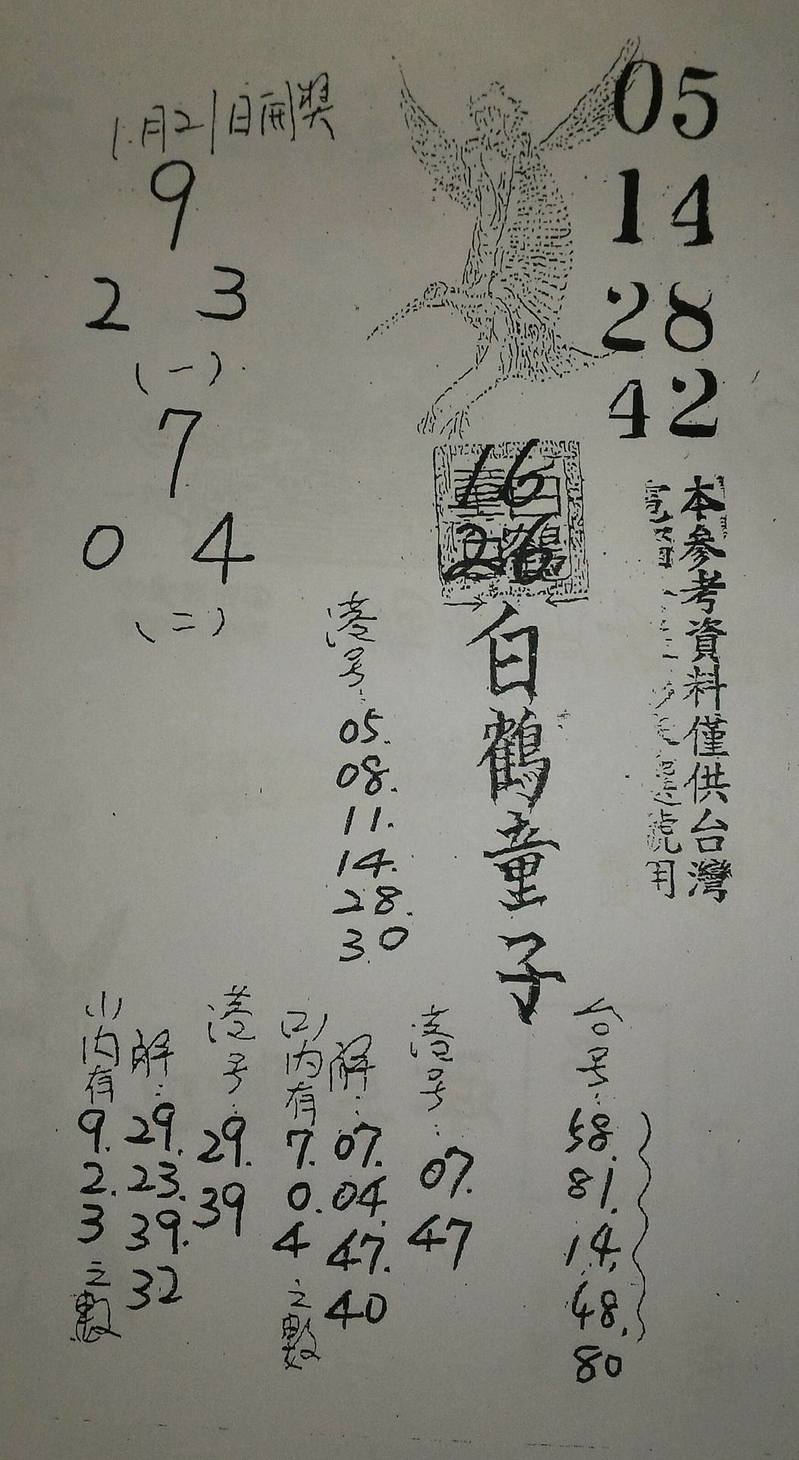 1月21日開獎
9
2 3
(一)
7
0 4
(二)
05
14
28
42
16
26
白鶴童子
本參考資料僅供台灣
選號用
港号:
05.
08.
11.
14.
28.
30
台号:
58.
81.
14.
48.
80
港号:
07.
47
解:
07.
04.
47.
40
(二)內有
7.
0.
4
之數
港号:
29.
39
解:
29.
23.
39.
32
(一)內有
9.
2.
3
之數